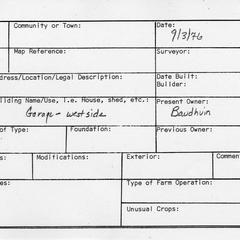 Community or Town:
Date:
9/3/76
Map Reference:
Surveyor:
dress/Location/Legal Description:
Date Built:
Builder:
ilding Name/Use, i.e. House, shed, etc.:
Garage - westside
Present Owner:
Baudhuin
of Type:
Foundation:
Previous Owner:
s:
Modifications:
Exterior:
Comment
es:
Type of Farm Operation:
Unusual Crops: